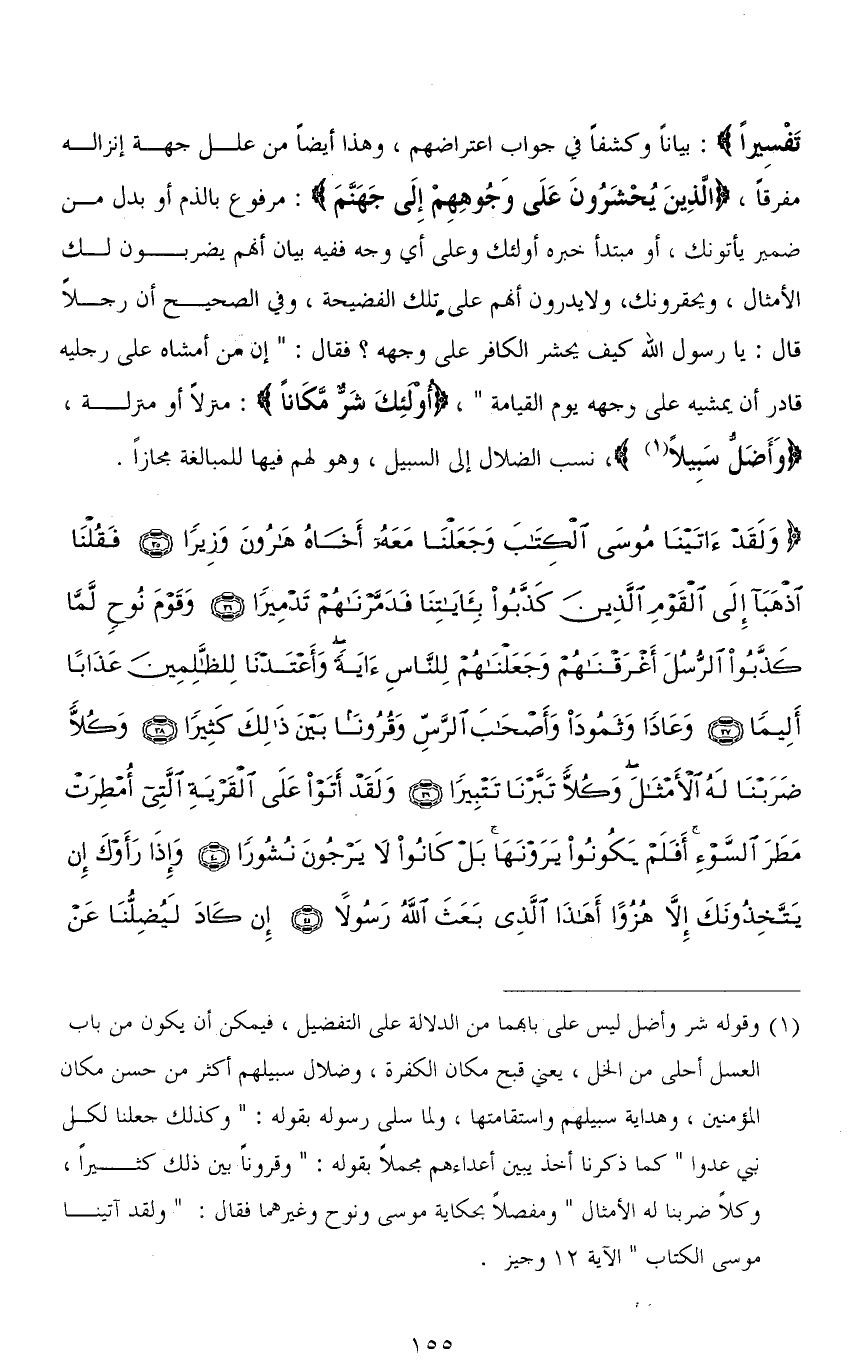 تَفْسِيراً ﴾ : بياناً وكشفاً في جواب اعتراضهم ، وهذا أيضاً من علـــل جهـــة إنزالـــه
مفرقاً ، ﴿الَّذِينَ يُحْشَرُونَ عَلَى وُجُوهِهِمْ إِلَى جَهَنَّمَ ﴾ : مرفوع بالذم أو بدل مـــن
ضمير يأتونك ، أو مبتدأ خبره أولئك وعلى أي وجه ففيه بيان أنهم يضربـــون لـــك
الأمثال ، ويحقرونك، ولايدرون أنهم على تلك الفضيحة ، وفي الصحيـــح أن رجـــلاً
قال : يا رسول الله كيف يحشر الكافر على وجهه ؟ فقال : " إن من أمشاه على رجليه
قادر أن يمشيه على وجهه يوم القيامة " ، ﴿أُوْلَئِكَ شَرٌّ مَّكَاناً ﴾ : منزلاً أو منزلـــة ،
﴿وَأَضَلُّ سَبِيلاً(١) ﴾، نسب الضلال إلى السبيل ، وهو لهم فيها للمبالغة مجازاً .
﴿ وَلَقَدْ ءَاتَيْنَا مُوسَى ٱلْكِتَٰبَ وَجَعَلْنَا مَعَهُۥٓ أَخَاهُ هَٰرُونَ وَزِيرًا ٣٥ فَقُلْنَا
ٱذْهَبَآ إِلَى ٱلْقَوْمِ ٱلَّذِينَ كَذَّبُوا۟ بِـَٔايَٰتِنَا فَدَمَّرْنَٰهُمْ تَدْمِيرًا ٣٦ وَقَوْمَ نُوحٍ لَّمَّا
كَذَّبُوا۟ ٱلرُّسُلَ أَغْرَقْنَٰهُمْ وَجَعَلْنَٰهُمْ لِلنَّاسِ ءَايَةً ۖ وَأَعْتَدْنَا لِلظَّٰلِمِينَ عَذَابًا
أَلِيمًا ٣٧ وَعَادًا وَثَمُودَا۟ وَأَصْحَٰبَ ٱلرَّسِّ وَقُرُونًۢا بَيْنَ ذَٰلِكَ كَثِيرًا ٣٨ وَكُلًّا
ضَرَبْنَا لَهُ ٱلْأَمْثَٰلَ ۖ وَكُلًّا تَبَّرْنَا تَتْبِيرًا ٣٩ وَلَقَدْ أَتَوْا۟ عَلَى ٱلْقَرْيَةِ ٱلَّتِىٓ أُمْطِرَتْ
مَطَرَ ٱلسَّوْءِ ۚ أَفَلَمْ يَكُونُوا۟ يَرَوْنَهَا ۚ بَلْ كَانُوا۟ لَا يَرْجُونَ نُشُورًا ٤٠ وَإِذَا رَأَوْكَ إِن
يَتَّخِذُونَكَ إِلَّا هُزُوًا أَهَٰذَا ٱلَّذِى بَعَثَ ٱللَّهُ رَسُولًا ٤١ إِن كَادَ لَيُضِلُّنَا عَنْ
(١) وقوله شر وأضل ليس على بابهما من الدلالة على التفضيل ، فيمكن أن يكون من باب
العسل أحلى من الخل ، يعني قبح مكان الكفرة ، وضلال سبيلهم أكثر من حسن مكان
المؤمنين ، وهداية سبيلهم واستقامتها ، ولما سلى رسوله بقوله : " وكذلك جعلنا لكـــل
نبي عدوا " كما ذكرنا أخذ يبين أعداءهم مجملاً بقوله : " وقروناً بين ذلك كثـــيراً ،
وكلاً ضربنا له الأمثال " ومفصلاً بحكاية موسى ونوح وغيرهما فقال : " ولقد آتينـــا
موسى الكتاب " الآية ١٢ وجيز .
١٥٥